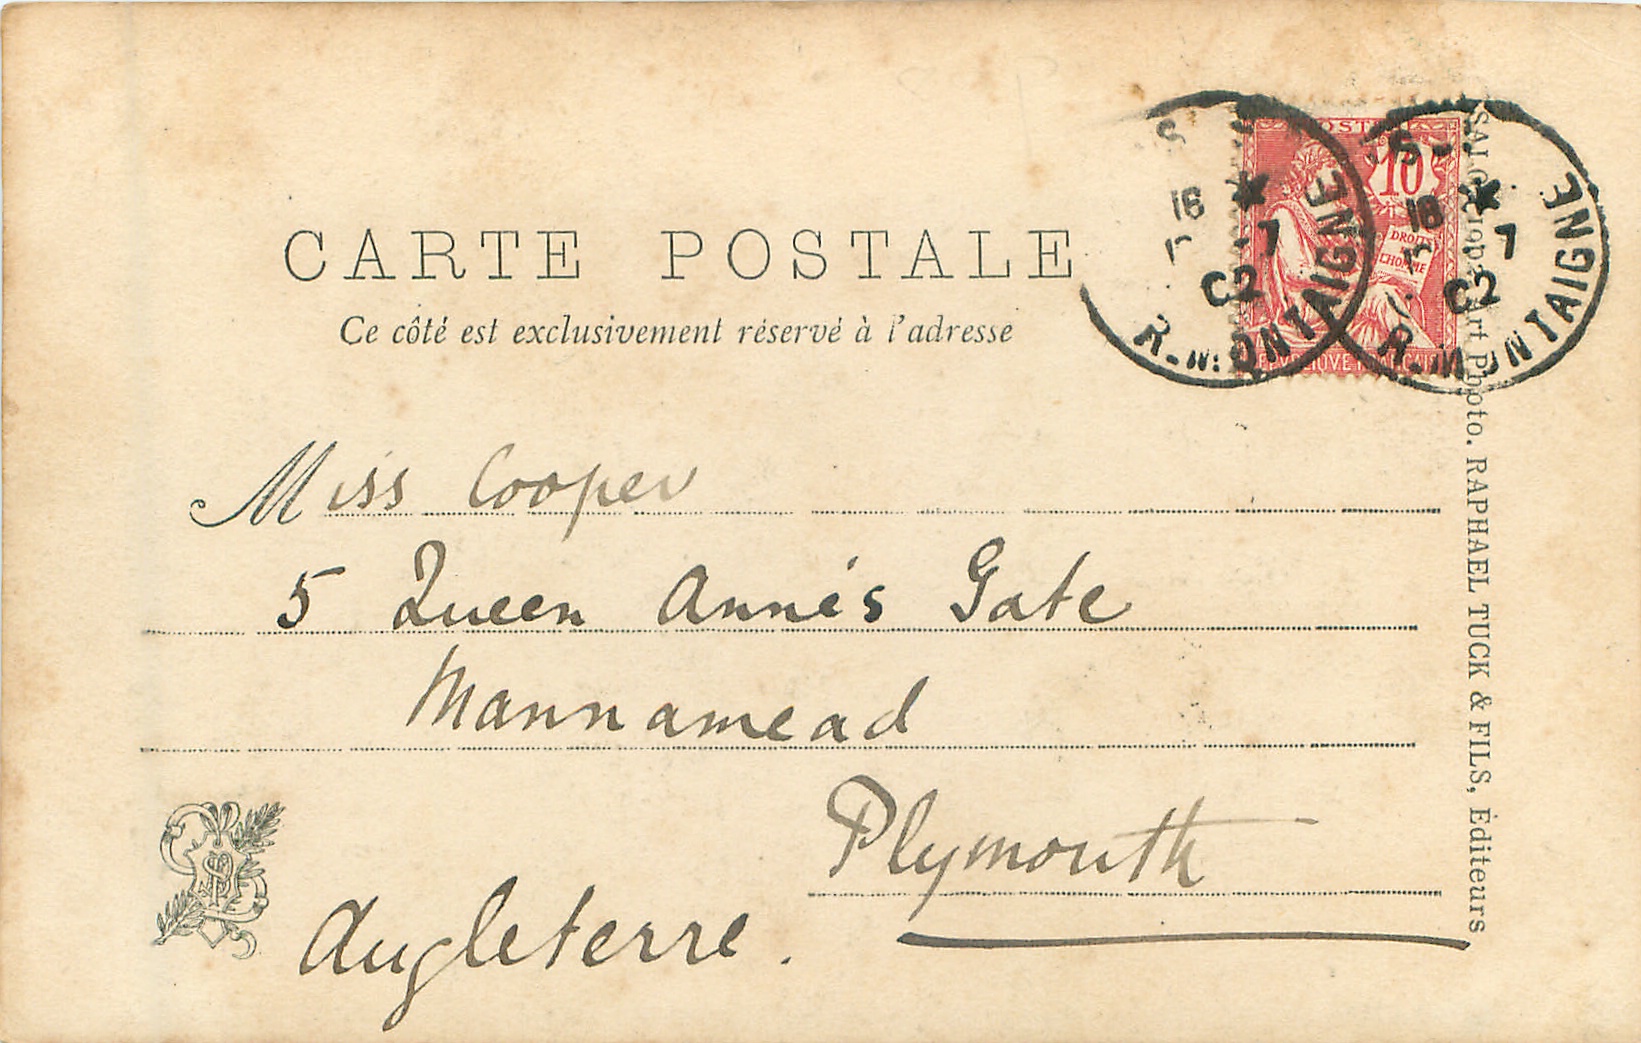 CARTE POSTALE
Ce côté est exclusivement réservé à l'adresse
POSTES
10
DROITS
L'HOMME
16 * -7
02
R. MONTAIGNE
16 * 7
02
R. MONTAIGNE
Miss Cooper
5 Queen Anne's Gate
Mannamead
Plymouth
Angleterre.
Art Photo. RAPHAEL TUCK & FILS, Éditeurs